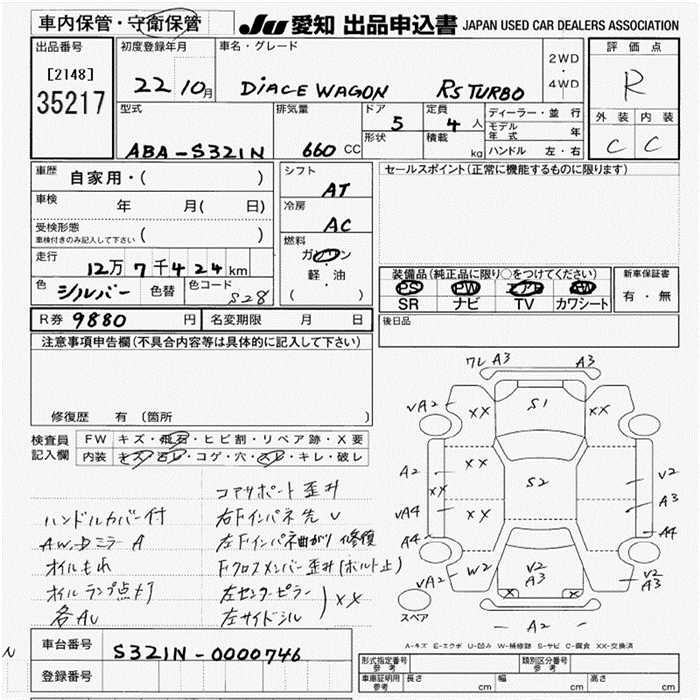 車内保管・守衛保管 JU 愛知 出品申込書 JAPAN USED CAR DEALERS ASSOCIATION
出品番号 初度登録年月 車名・グレード 2WD・4WD 評価点
[2148] 35217 22 10月 DiACE WAGON RS TURBO R
型式 排気量 ドア 5 定員 4人 ディーラー・並行 外装 内装
形状 積載 kg モデル年式 年 C C
ABA-S321N 660 CC ハンドル 左・右
車歴 自家用・( ) シフト AT セールスポイント(正常に機能するものに限ります)
車検 年 月( 日) 冷房 AC
受検形態 車検付きのみ記入して下さい ( ) 燃料 ガソリン
走行 12万7千424km 軽・油 ( ) 装備品(純正品に限り○をつけてください) 新車保証書
色 シルバー 色替 色コード S28 PS PW エアB AW 有・無
SR ナビ TV カワシート
R券 9880円 名変期限 月 日 後日品
注意事項申告欄(不具合内容等は具体的に記入して下さい)
修復歴 有 〔箇所
検査員記入欄 FW キズ・飛石・ヒビ割・リペア跡・X要
内装 キズ・汚レ・コゲ・穴・スレ・キレ・破レ
コアサポート歪み
ハンドルカバー付 右Fインパネ先V
AW.Dミラー A 左Fインパネ曲がり修復
オイルもれ Fクロスメンバー歪み(ボルト止)
オイルランプ点灯 左センターピラー
各AU 左サイドシル XX
ワレ A3 A3
VA2 XX S1 XX
A2 XX XX S2 V2
A3
VA4 XX
A4 A4
VA2 W2 V2 A3 V2 A3
X X
スペア A2
A-キズ E-エクボ U-凹み W-補修跡 S-サビ C-腐食 XX-交換済
車台番号 S321N-0000746
登録番号
形式指定番号 参考 類別区分番号 参考
車庫証明用 参考 長さ cm 幅 cm 高さ cm
N